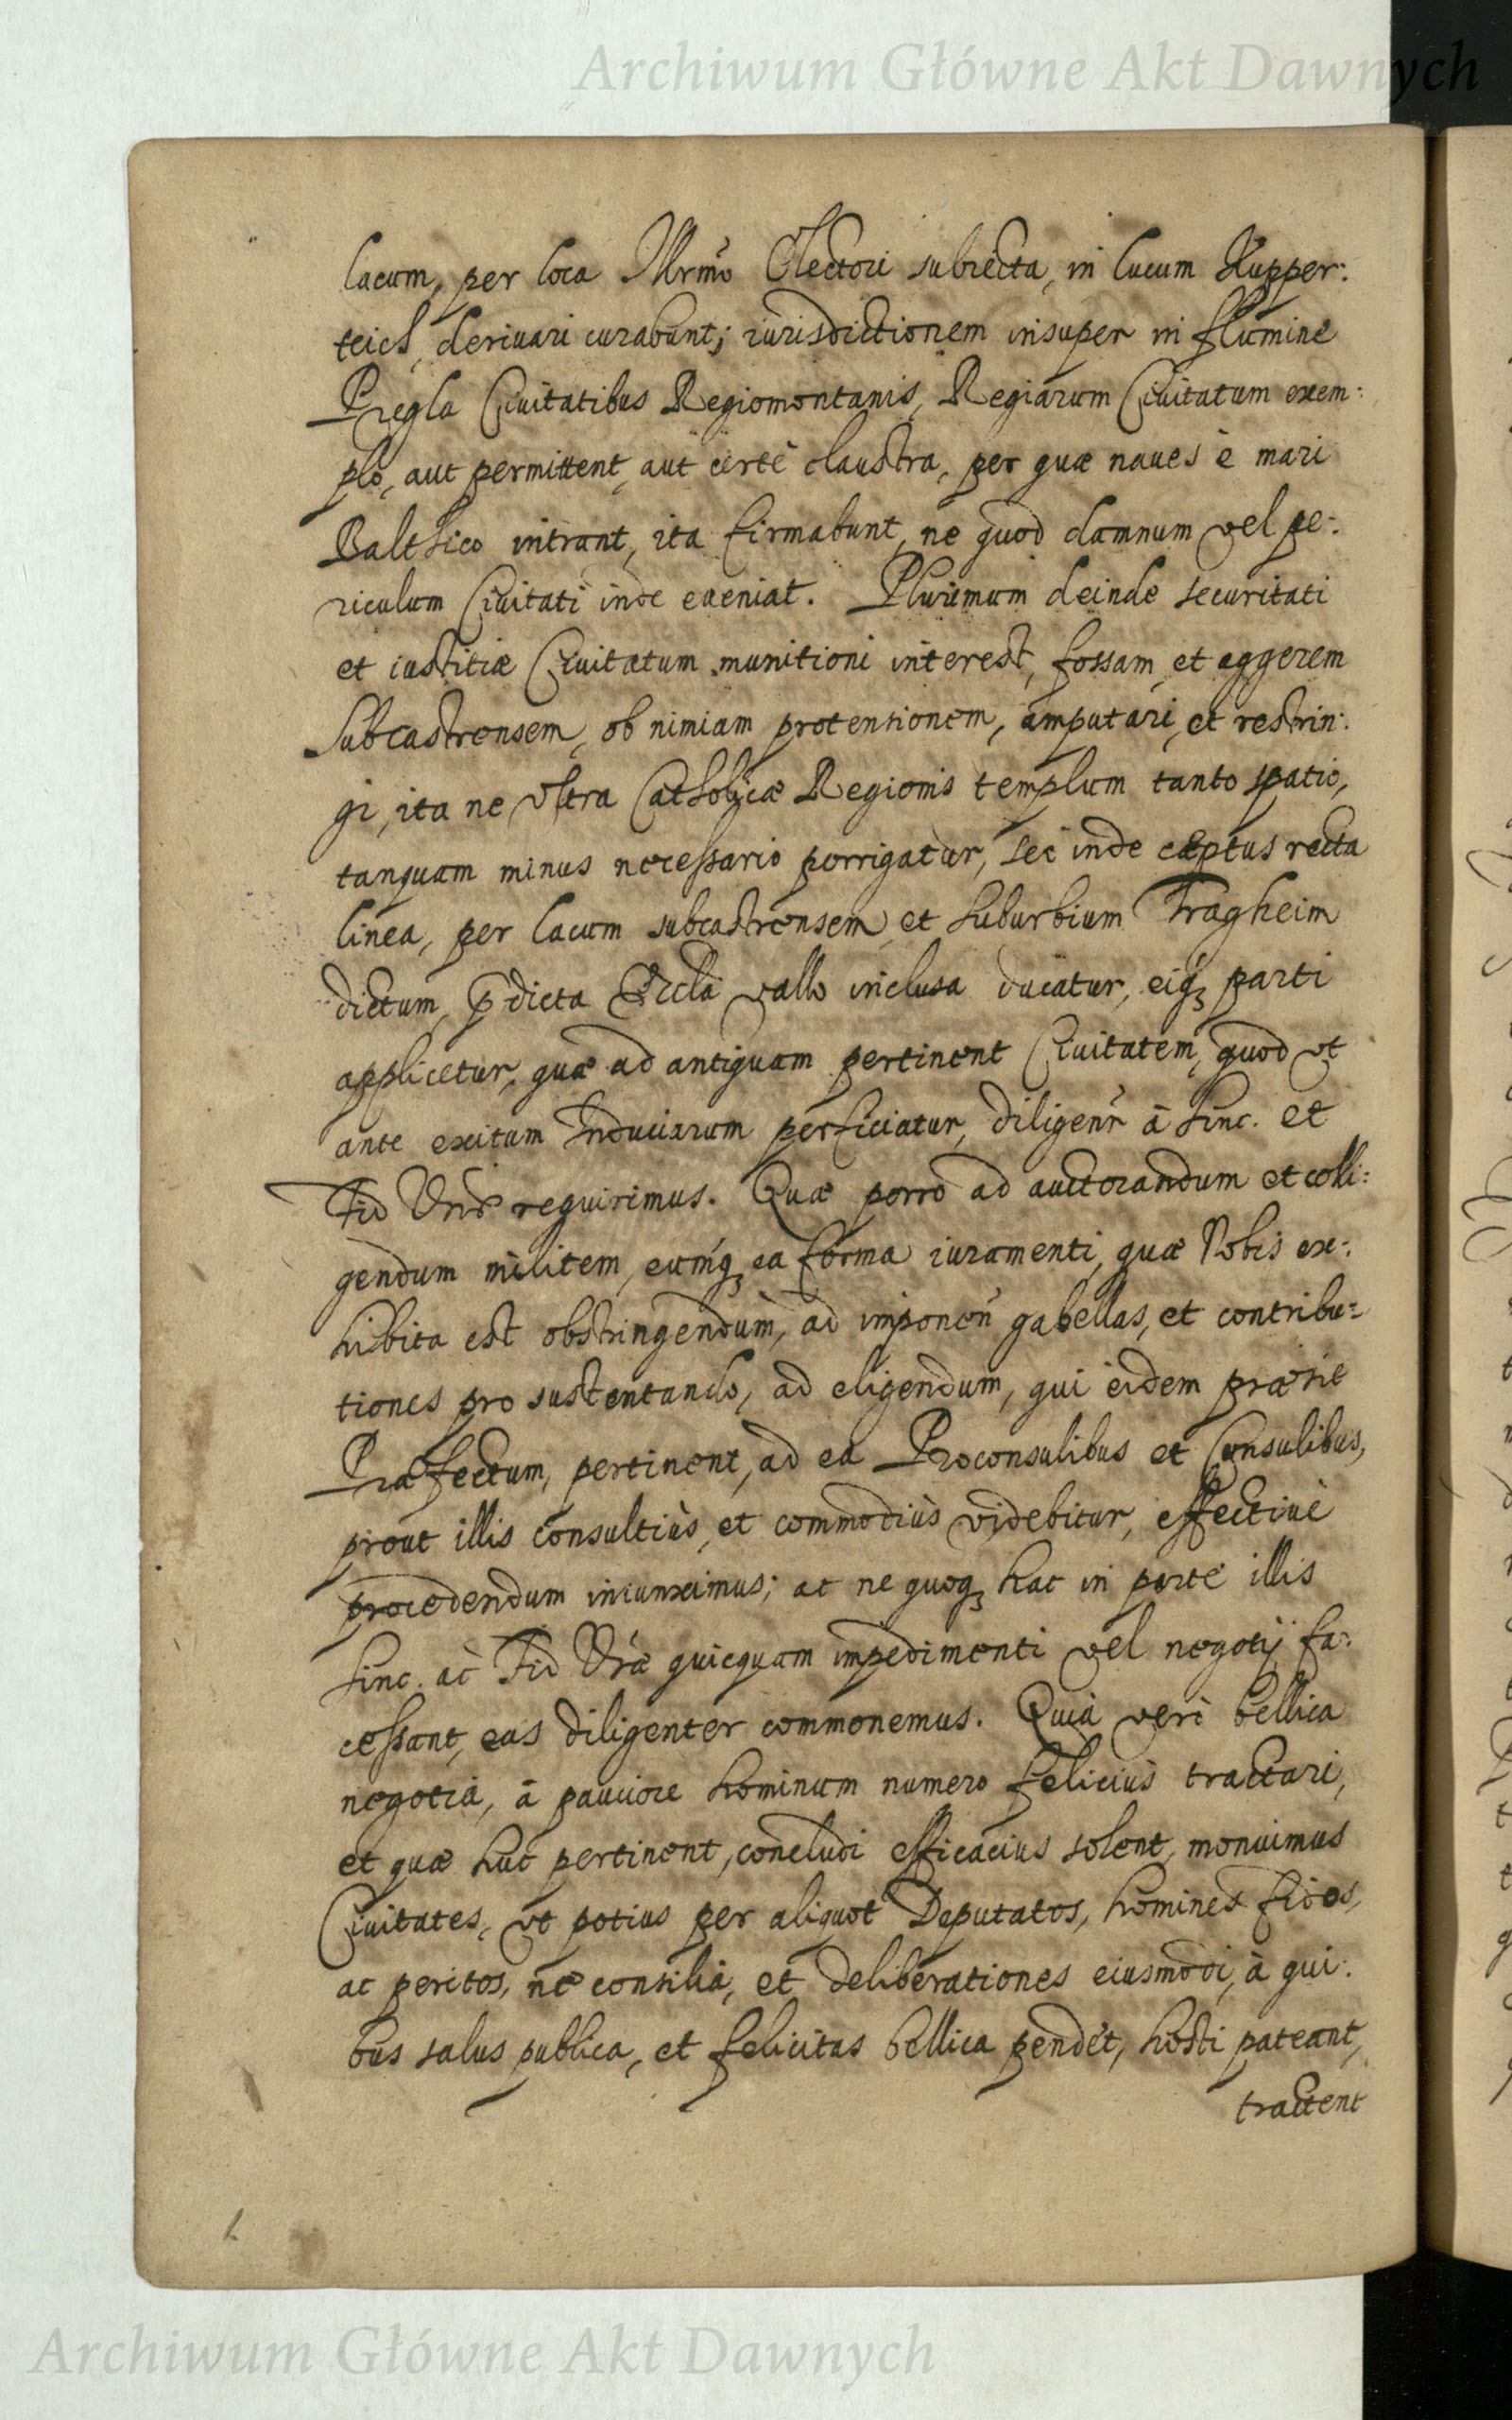 Archiwum Główne Akt Dawnych
lacum, per loca Illrmo Electori subiecta, in lucum Kupper:
teich, deriuari curabunt; iurisdictionem insuper in flumine
Pregla Ciuitatibus Regiomontanis, Regiarum Ciuitatum exem:
plo, aut permittent, aut certè claustra, per quæ naues è mari
Balthico intrant, ita firmabunt, ne quod damnum vel pe:
riculum Ciuitati inde eueniat. Plurimum deinde securitati
et iustitiæ Ciuitatum munitioni interest, fossam et aggerem
Subcastrensem, ob nimiam protensionem, amputari, et restrin:
gi, ita ne vltra Catholicæ Regionis templum tanto spatio,
tanquam minus necessario porrigatur, sed inde cæptus recta
linea, per lacum subcastrensem et suburbium Tragheim
dictum, p̃dicta Eccla vallo inclusa ducatur, eiq3 parti
applicetur, quæ ad antiquam pertinent Ciuitatem, quod vt
ante exitum Induciarum perficiatur, diligenr à Sinc. et
Fid Vris requirimus. Quæ porrò ad auctorandum et colli:
gendum militem, eumq3 ea forma iuramenti, quæ Nobis ex:
hibita est obstringendum, ad imponen gabellas, et contribu:
tiones pro sustentando, ad eligendum, qui eidem præsit
Præfectum, pertinent, ad ea Proconsulibus et Consulibus,
prout illis consultiùs, et commodiùs videbitur, effectiuè
procedendum iniunximus; at ne quoq3 hac in parte illis
Sinc. ac Fid Vræ quicquam impedimenti vel negotij fa:
cessant, eas diligenter commonemus. Quia verò bellica
negotia, à pauciore hominum numero feliciùs tractari,
et quæ huc pertinent, concludi efficacius solent, monuimus
Ciuitates, vt potius per aliquot Deputatos, homines fidos,
ac peritos, ne consilia, et deliberationes eiusmodi, à qui:
bus salus publica, et felicitas bellica pendet, hosti pateant,
tractent
Archiwum Główne Akt Dawnych